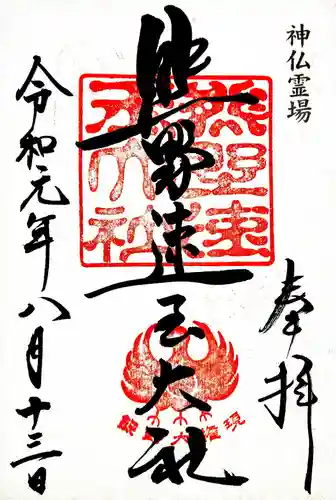 神仏霊場
奉拝
熊野速玉大社
熊野速玉大社
令和元年八月十三日